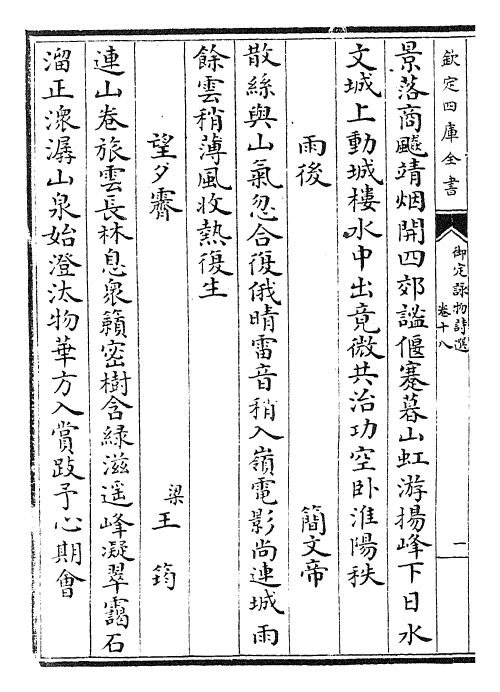 欽定四庫全書
御定詠物詩選
卷十八
一
景落商飈靖烟開四郊謐偃蹇暮山虹游揚峰下日水
文城上動城樓水中出竟微共治功空卧淮陽秩
雨後 簡文帝
散絲與山氣忽合復俄晴雷音稍入嶺電影尚連城雨
餘雲稍薄風收熱復生
望夕霽 梁王筠
連山卷旅雲長林息衆籟密樹含綠滋遥峰凝翠靄石
溜正潨潺山泉始澄汰物華方入賞跂予心期會